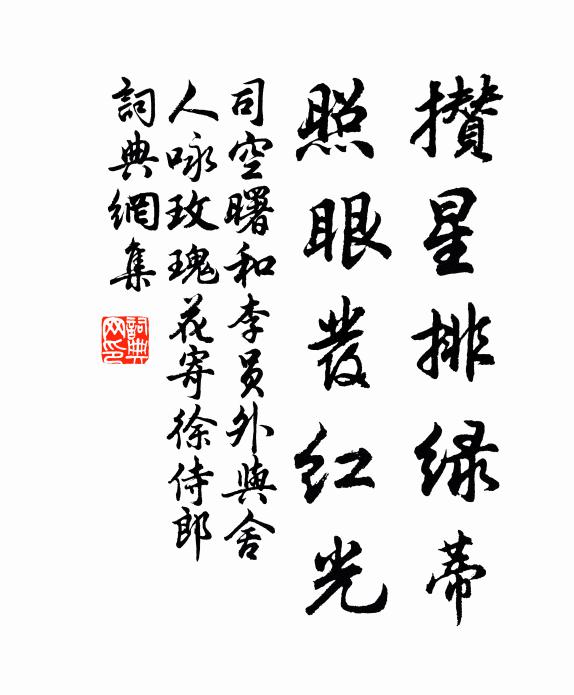 攢星排綠蒂
照眼發紅光
司空曙和李員外與舍
人咏玫瑰花寄徐侍郎
詞典網集
詞典
网印